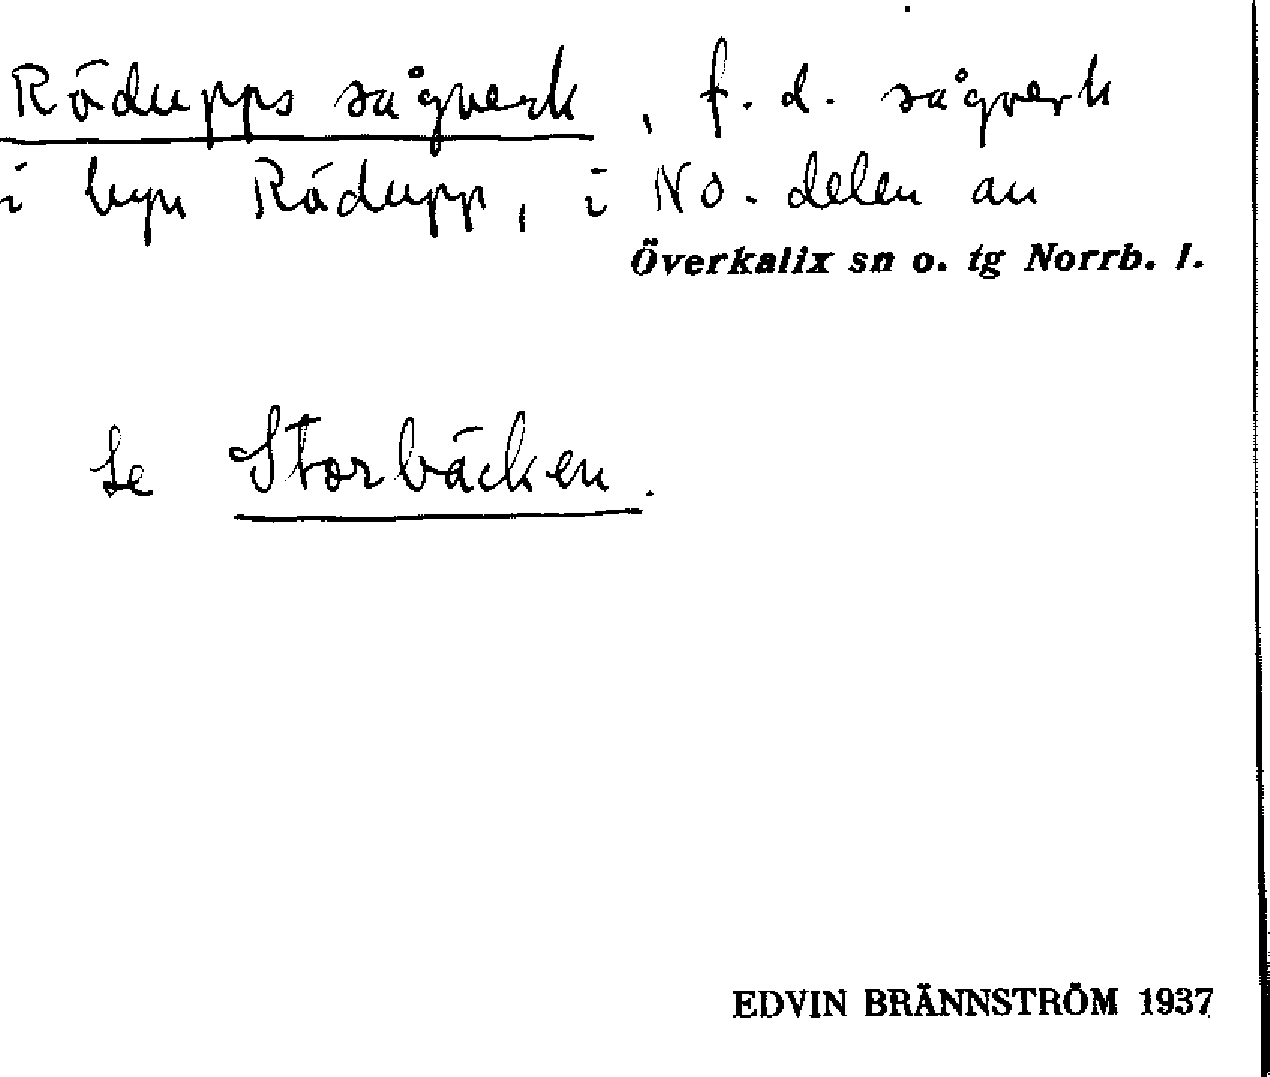 Rödupps sågverk, f. d. sågverk
i byn Rödupp, i NO. delen av
Överkalix sn o. tg Norrb. l.
Se Storbäcken.
EDVIN BRÄNNSTRÖM 1937